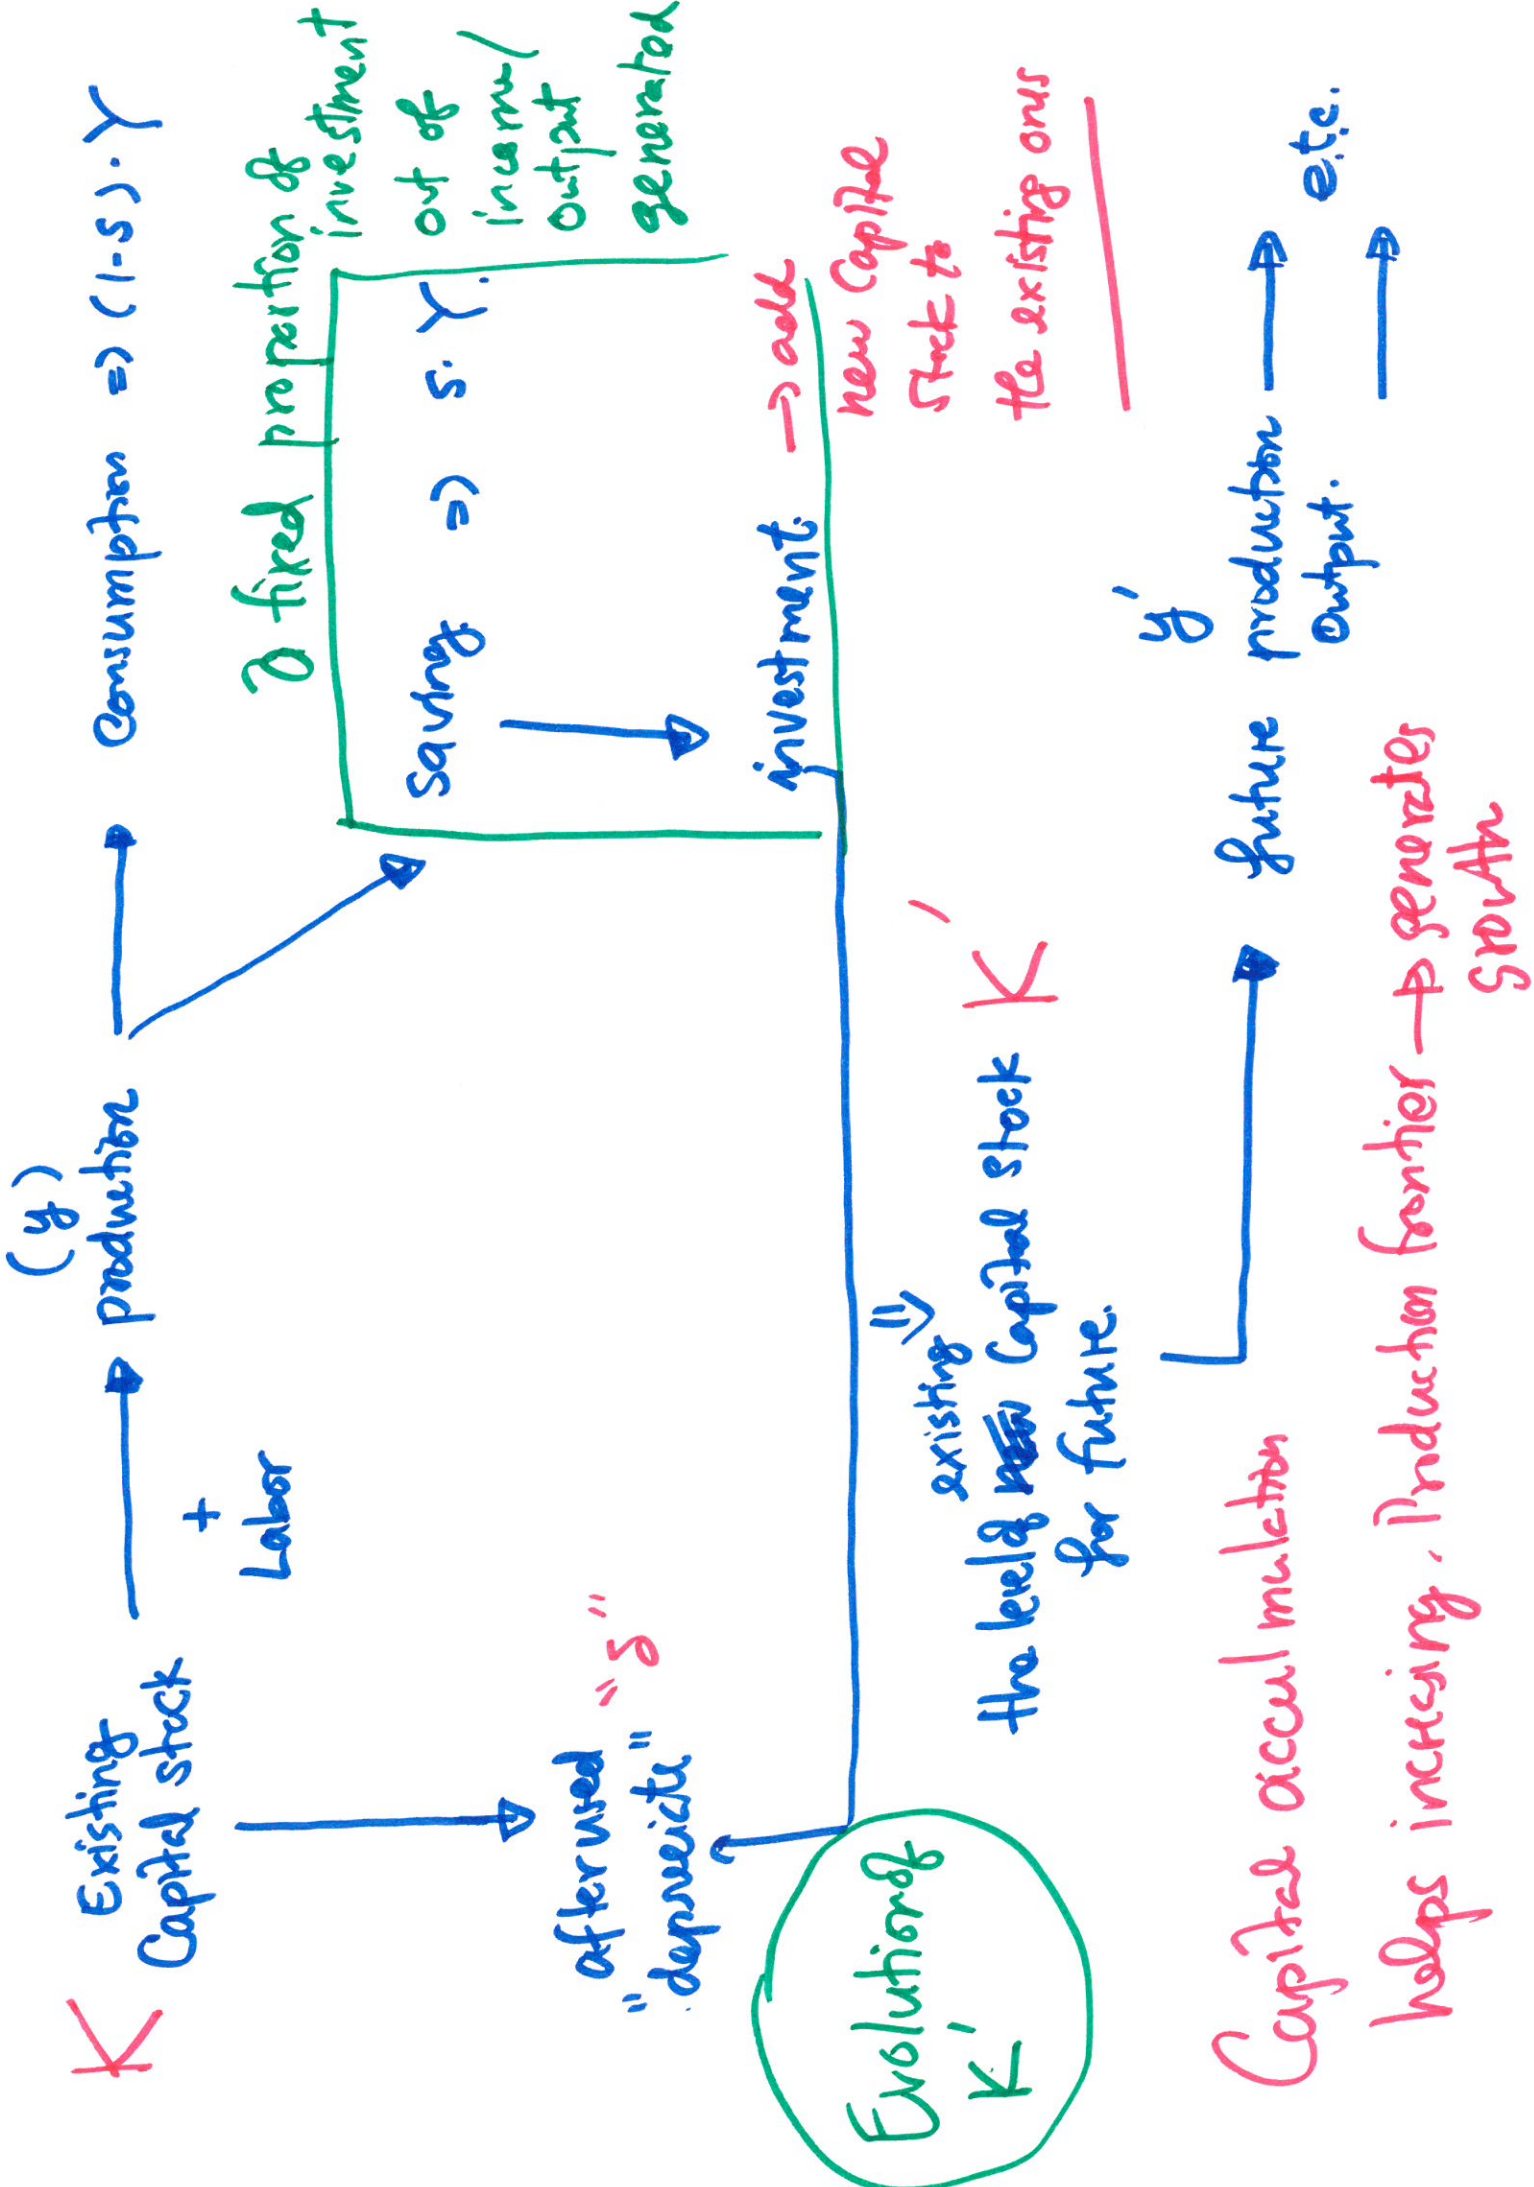 K
Existing
Capital stock
+
Labor
(y)
production
Consumption => (1-s).Y
a fixed proportion of
investment
out of
income/
output
generated
saving => s.Y.
investment.
→ add
new capital
stock to
the existing ones
after used
"depreciate"
"δ"
Evolution of
K'
existing
the level of new Capital stock K'
for future.
y'
future production
output.
etc.
Capital accumulation
helps increasing, Production frontier → generates
growth